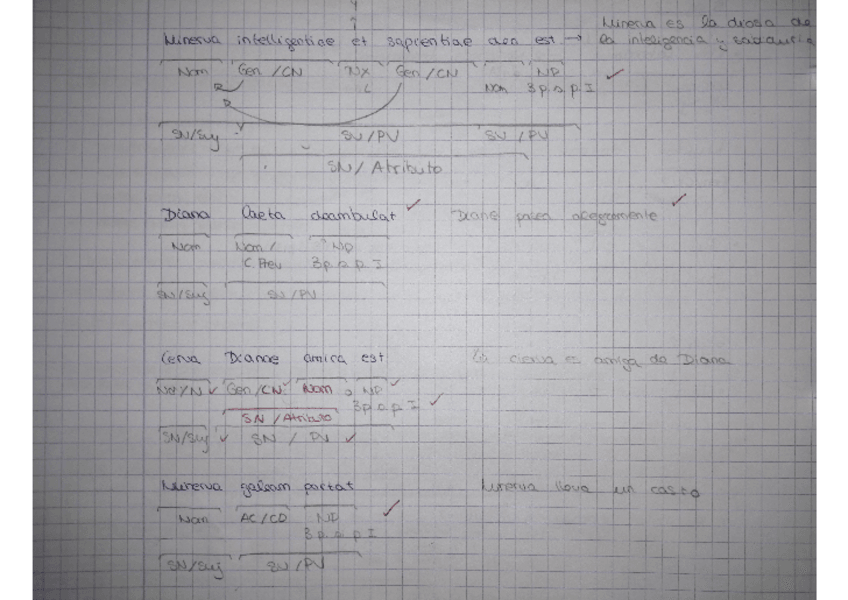 Minerva es la diosa de
Minerva intelligentiae et saprentiae dea est → la inteligencia y sabiduría
Nom Gen /CN Nx Gen /CN NP
L Nom 3 p. s p. I
SN/Suj SV/PV SV /PV
SN/ Atributo
Diana laeta deambulat Diana pasea alegremente
Nom Nom / NP
C. Prev 3 p s p. I
SN/Suj SV /PV
Cerva Dianae amica est La cierva es amiga de Diana
Gen/CN Nom NP
3 p s p I
SN /Atributo
SN/Suj SN / PV
Minerva galeam portat Minerva lleva un casco
Nom AC/CD NP
3 p s p I
SN/Suj SV /PV